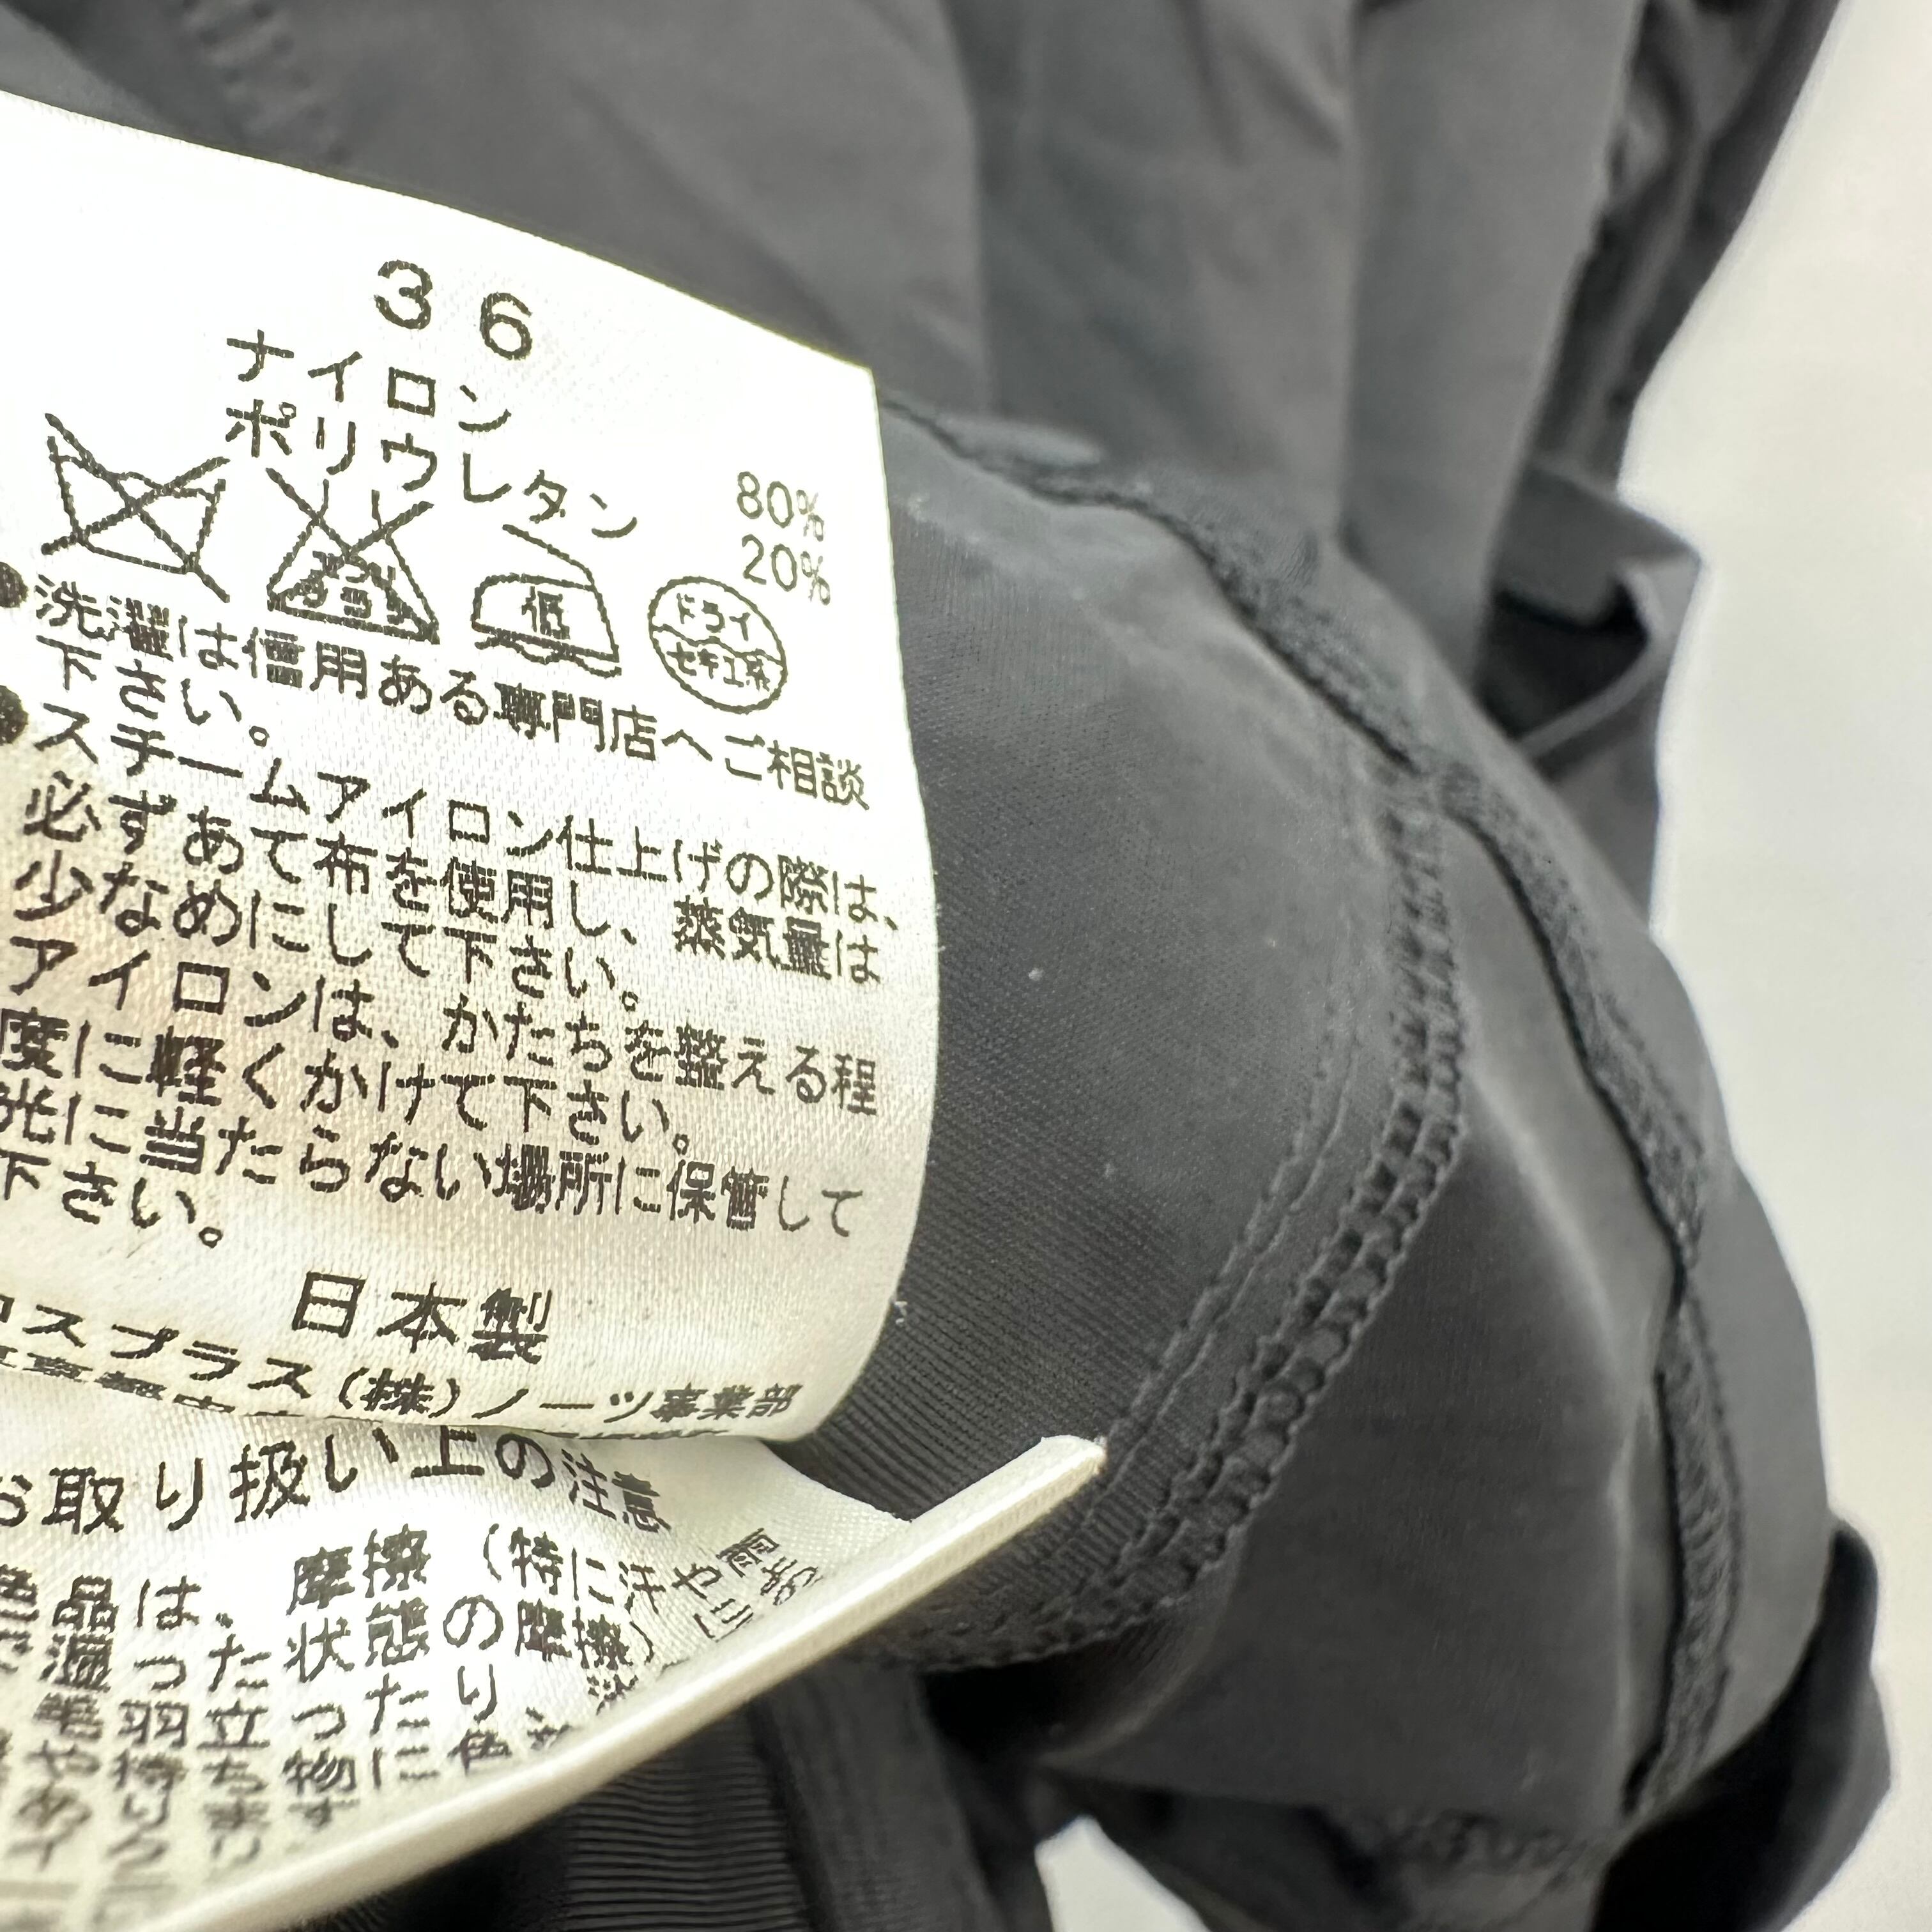 36
ナイロン 80%
ポリウレタン 20%
低
ドライ
セキユ系
洗濯は信用ある専門店へご相談
下さい。
スチームアイロン仕上げの際は、
必ずあて布を使用し、蒸気量は
少なめにして下さい。
アイロンは、かたちを整える程
度に軽くかけて下さい。
光に当たらない場所に保管して
下さい。
日本製
スプラス(株)ノーツ事業部
お取り扱い上の注意
品は、摩擦(特に汗や雨
った状態の摩擦)
羽立ったり、
物に色